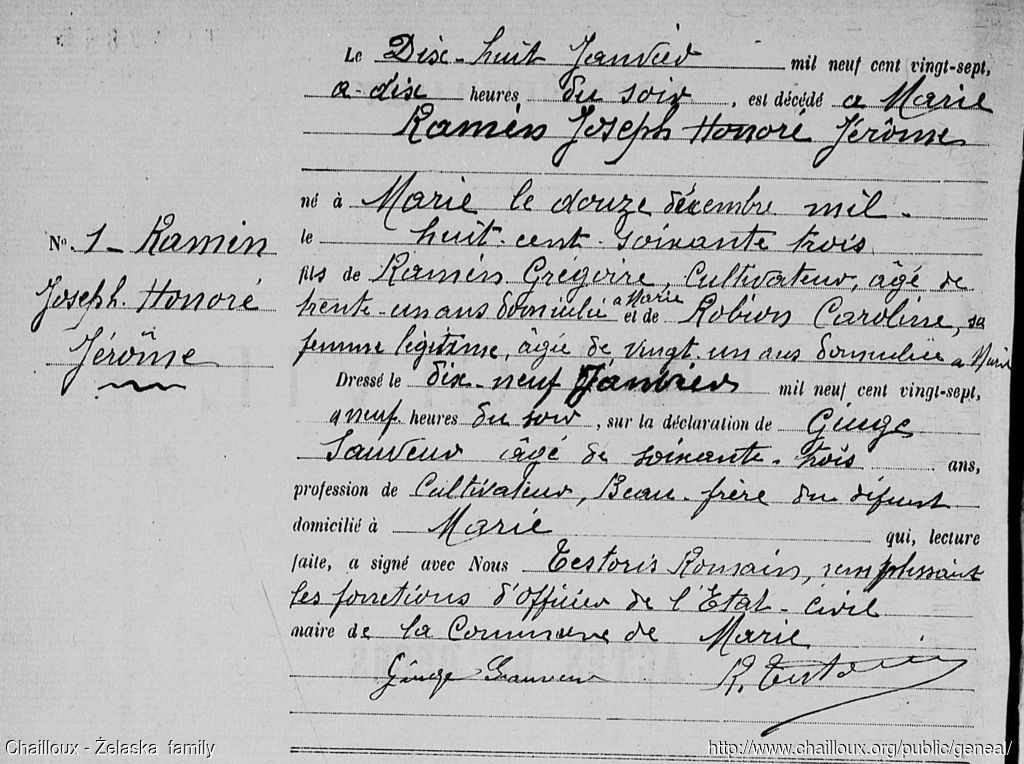 Le Dix-huit Janvier mil neuf cent vingt-sept,
a dix heures du soir, est décédé a Marie
Ramin Joseph Honoré Jérôme
né à Marie le douze décembre mil-
le huit-cent-soixante trois
fils de Ramin Grégoire, Cultivateur, âgé de
trente-un ans domicilié a Marie et de Robion Caroline, sa
femme légitime, âgée de vingt-un ans domiciliée a Marie
Dressé le dix-neuf Janvier mil neuf cent vingt-sept,
a neuf heures du soir, sur la déclaration de Ginge
Sauveur âgé de soixante-trois ans,
profession de Cultivateur, Beau-frère du défunt
domicilié à Marie qui, lecture
faite, a signé avec Nous Testoris Romain, remplissant
les fonctions d'Officier de l'Etat-Civil
maire de la Commune de Marie
Ginge Sauveur R. Testoris
No. 1 - Ramin
Joseph Honoré
Jérôme
Chailloux - Želaska family
http://www.chailloux.org/public/geneal/